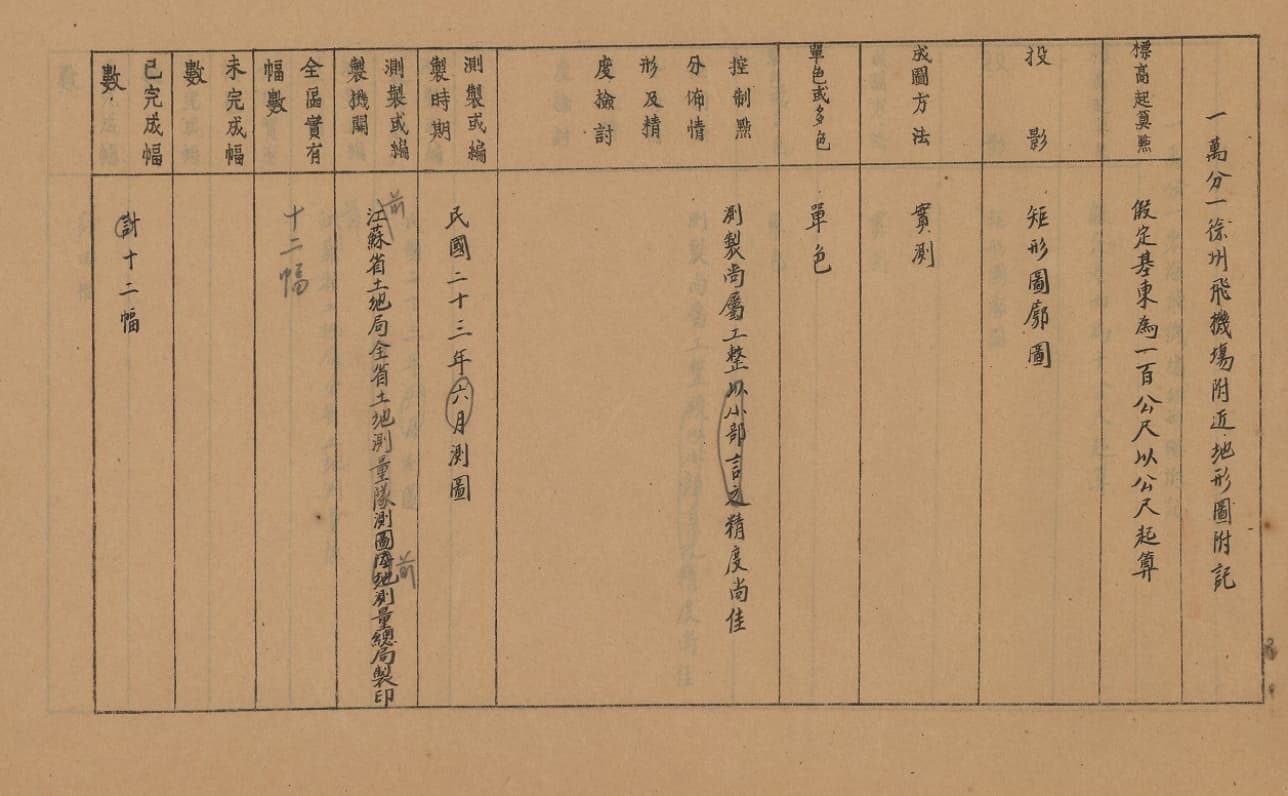 一萬分一徐州飛機場附近地形圖附記
標高起算點
假定基東為一百公尺以公尺起算
投影
矩形圖廓圖
成圖方法
實測
單色或多色
單色
控制點
分佈情
形及精
度檢討
測製尚屬工整以小部言之精度尚佳
測製或編
製時期
民國二十三年六月測圖
測製或編
製機關
前
江蘇省土地局全省土地測量隊測圖陸地測量總局製印
前
全區實有
幅數
十二幅
未完成幅
數
已完成幅
數
計十二幅